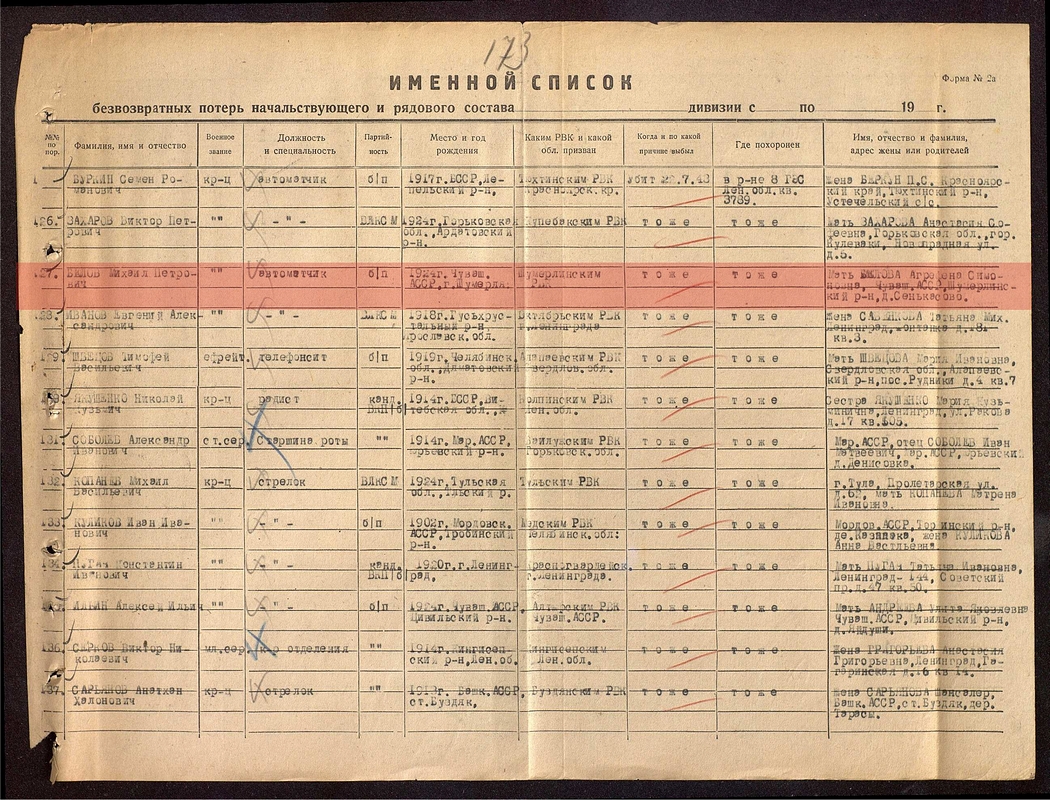 173
ИМЕННОЙ СПИСОК
Форма № 2а
безвозвратных потерь начальствующего и рядового состава дивизии с по 19 г.
№№ по пор.
Фамилия, имя и отчество
Военное звание
Должность и специальность
Партийность
Место и год рождения
Каким РВК и какой обл. призван
Когда и по какой причине выбыл
Где похоронен
Имя, отчество и фамилия, адрес жены или родителей
БУРКИН Семен Ро- кр-ц автоматчик б/п 1917г. БССР, Ле- Тюхтинским РВК убит 22.7.43 в р-не 8 ГЭС Жена
манович пельский р-н, Красноярск.кр. Лен.обл.кв. кий край, Тюхтинский р-н,
3789. Устечельский с/с.
126. ЗАХАРОВ Виктор Пет- "" -"- ВЛКСМ 1924г. Горьковская Кулебакским РВК тоже тоже Мать ЗАХАРОВА Анастасия
рович обл., Ардатовский Горьковская обл., гор.
р-н. Кулебаки,
д.5.
127. Михаил Петро- "" автоматчик б/п 1924г. Чуваш. Шумерлинским тоже тоже Мать Агрефена Симо-
вич АССР, г.Шумерля РВК новна, Чуваш.АССР, Шумерлинс-
кий р-н, д.Сенькасово.
128. ИВАНОВ Евгений Алек- "" -"- ВЛКСМ 1918г. Гусьхрус- Октябрьским РВК тоже тоже Жена Татьяна Мих.
сандрович тальный р-н г.Ленинграда Ленинград, Фонтанка д.181
Ярославск.обл. кв.3.
129. ШВЕЦОВ Тимофей ефрейт. телефонист б/п 1919г. Челябинск. Алапаевским РВК тоже тоже Мать ШВЕЦОВА Мария Ивановна,
Васильевич обл., Далматовский Свердлов.обл. Свердловская обл., Алапаевс-
р-н. кий р-н, пос.Рудники д.4 кв.7
130. ЯКУШЕНКО Николай кр-ц радист канд. 1914г. БССР, Ви- Колпинским РВК тоже тоже Сестра ЯКУШЕНКО Мария Кузь-
Кузьмич ВКП/б/ тебская обл., Лен.обл. минична, Ленинград, ул.Ракова
д.17 кв.305.
131. СОБОЛЕВ Александр ст.сер. Старшина роты "" 1914г. Мар.АССР, РВК тоже тоже Мар.АССР, отец СОБОЛЕВ Иван
Иванович Юрьевский р-н. Горьковск.обл. Матвеевич, Мар.АССР, Юрьевский
д.Денисовка.
132. КОПАНЕВ Михаил кр-ц стрелок ВЛКСМ 1924г. Тульская Тульским РВК тоже тоже г.Тула, Пролетарская ул.
Васильевич обл., д.62, мать КОПАНЕВА Матрена
Ивановна.
133. КУЛИКОВ Иван Ива- "" -"- б/п 1902г. Мордовск. РВК тоже тоже Мордов.АССР, р-н,
нович АССР, Челябинск.обл. жена КУЛИКОВА
р-н. Анна
134. Константин "" -"- канд. 1920г. г.Ленинг- Красногвардейск. тоже тоже Мать Татьяна Ивановна,
Иванович ВКП/б/ рад, г.Ленинграда. Ленинград- 144, Советский
пр.д.47 кв.50.
135. ИЛЬИН Алексей Ильич "" -"- б/п 1924г. Чуваш.АССР, РВК тоже тоже Мать АНДРЕЕВА Яковлевна
Цивильский р-н. Чуваш.АССР. Чуваш.АССР, Цивильский р-н,
136. СЕРКОВ Виктор Ни- мл.сер. ком отделения "" 1914г. Кингисеп- Кингисепским тоже тоже Жена ГРИГОРЬЕВА Анастасия
колаевич ский р-н, Лен.об. Лен.обл. Григорьевна, Ленинград, Га-
гаринская д.16 кв 14.
137. САРЬЯНОВ кр-ц стрелок "" Башк.АССР, Буздянским РВК тоже тоже Жена САРЬЯНОВА
Халонович ст.Буздяк, Башк.АССР, ст.Буздяк, дер.
Тарасы.